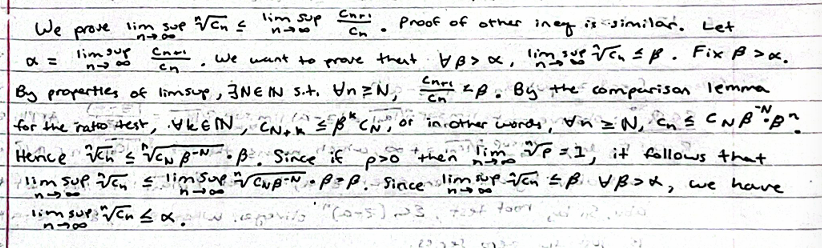 We prove lim sup n→∞ ⁿ√cn ≤ lim sup n→∞ cn+1/cn. Proof of other ineq is similar. Let
α = lim sup n→∞ cn+1/cn. We want to prove that ∀β>α, lim sup n→∞ ⁿ√cn ≤ β. Fix β>α.
By properties of limsup, ∃N∈ℕ s.t. ∀n≥N, cn+1/cn < β. By the comparison lemma
for the ratio test, ∀k∈ℕ, cN+k ≤ β^k cN, or in other words, ∀n≥N, cn ≤ cN β^-N · β^n.
Hence ⁿ√cn ≤ ⁿ√(cN β^-N) · β. Since if p>0 then lim n→∞ ⁿ√p = 1, it follows that
lim sup n→∞ ⁿ√cn ≤ lim sup n→∞ ⁿ√(cN β^-N) · β = β. Since lim sup n→∞ ⁿ√cn ≤ β ∀β>α, we have
lim sup n→∞ ⁿ√cn ≤ α.